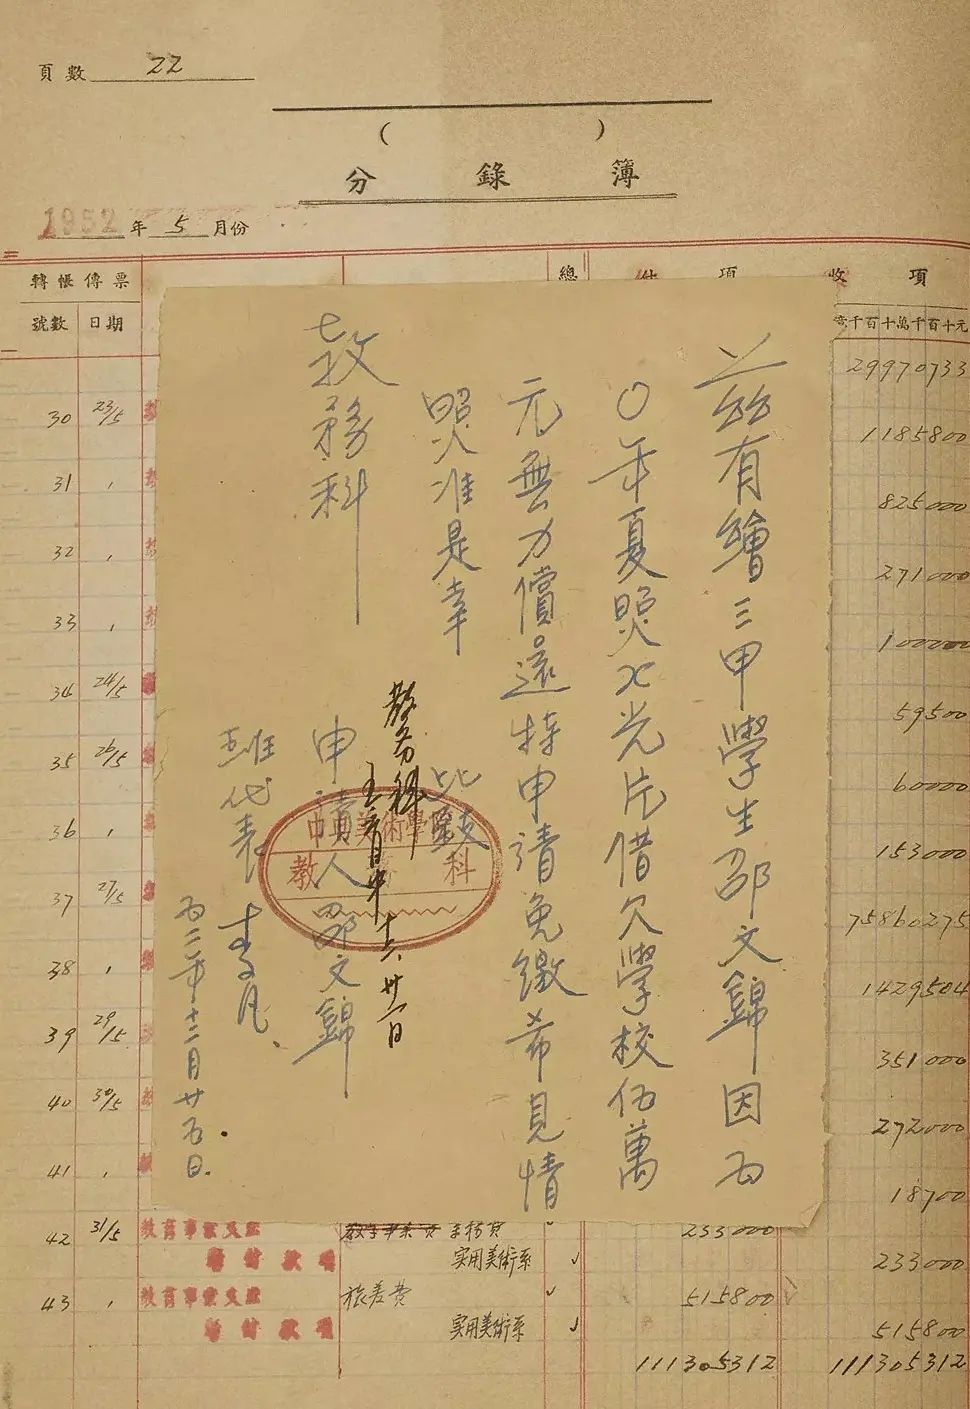 頁數 22
( )
分錄簿
1952年 5 月份
轉帳傳票
號數 日期
總 付項 收項
千百十萬千百十元
29970733
30 23/5 1185800
31 , 825000
32 , 271000
33 , 100000
34 24/5 59500
35 26/5 60000
36 , 153000
37 27/5 75860275
38 , 1429504
39 29/5 351000
40 30/5 272000
41 , 18700
42 31/5 教育事業支出 233000
暫付款項 实用美術系 233000
43 , 教育事業支出 旅差費 515800
暫付款項 实用美術系 515800
111305312 111305312
茲有繪三甲學生邵文錦因五
〇年夏照X光片借欠學校伍萬
元無力償還特申請免繳希見情
照准是幸
此致
教務科
申請人邵文錦
班代表
五二年十二月廿五日.
教务科
美術學
教 科